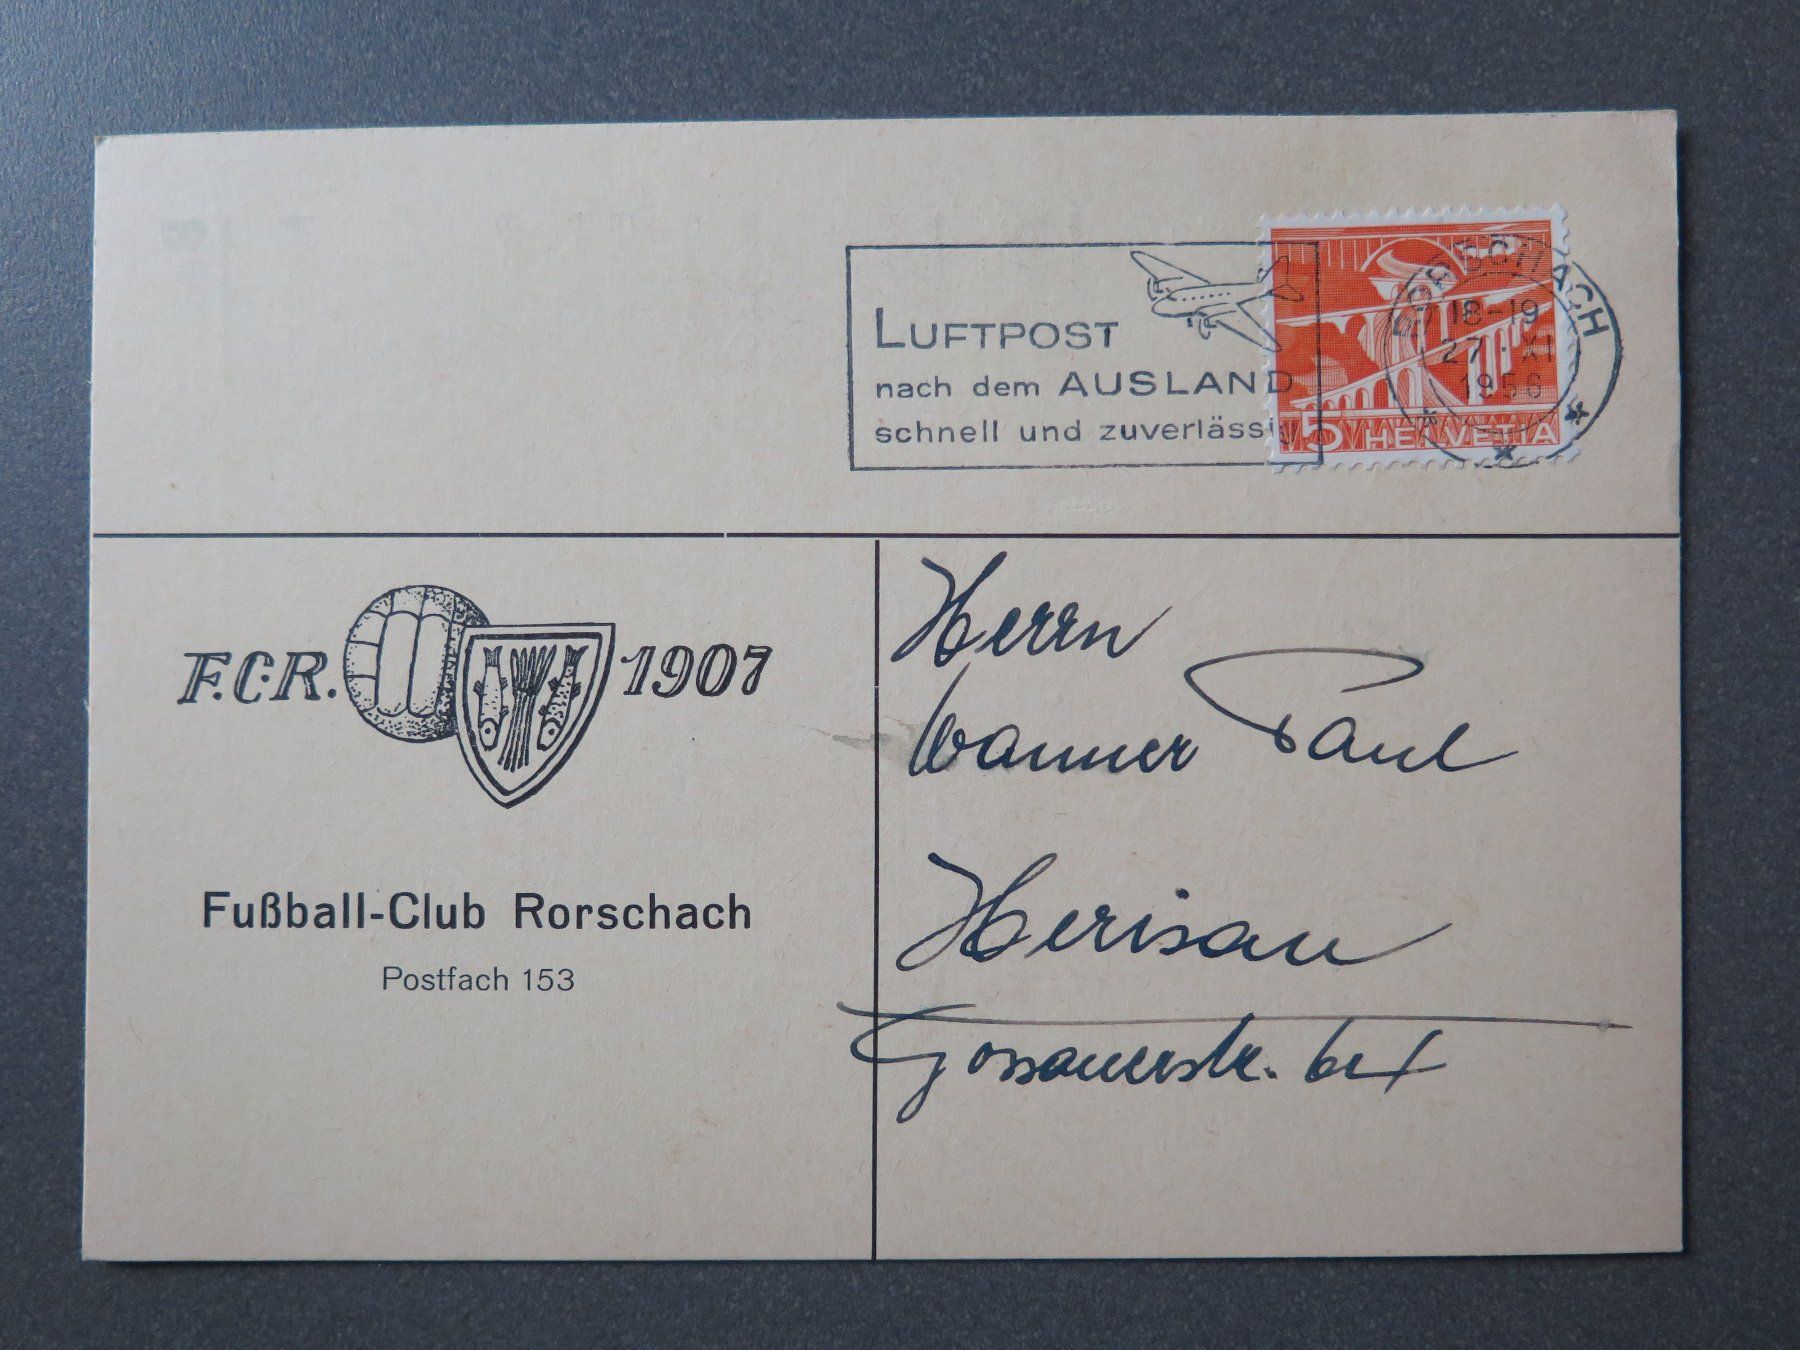 LUFTPOST
nach dem AUSLAND
schnell und zuverlässig
RORSCHACH
18-19
27.XI
1956
5 HELVETIA
F.C.R. 1907
Fußball-Club Rorschach
Postfach 153
Herrn
Wanner Paul
Herisau
Gossauerstr.